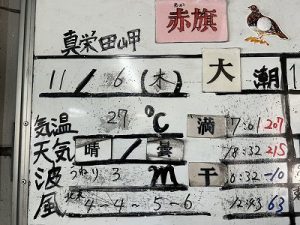 赤旗
真栄田岬
11/6(木) 大潮
気温 27℃ 満 7:01 207
天気 晴/曇 18:32 215
波 うねり3m 干 0:32 -10
風 北東 4-4-5-6 12:43 63